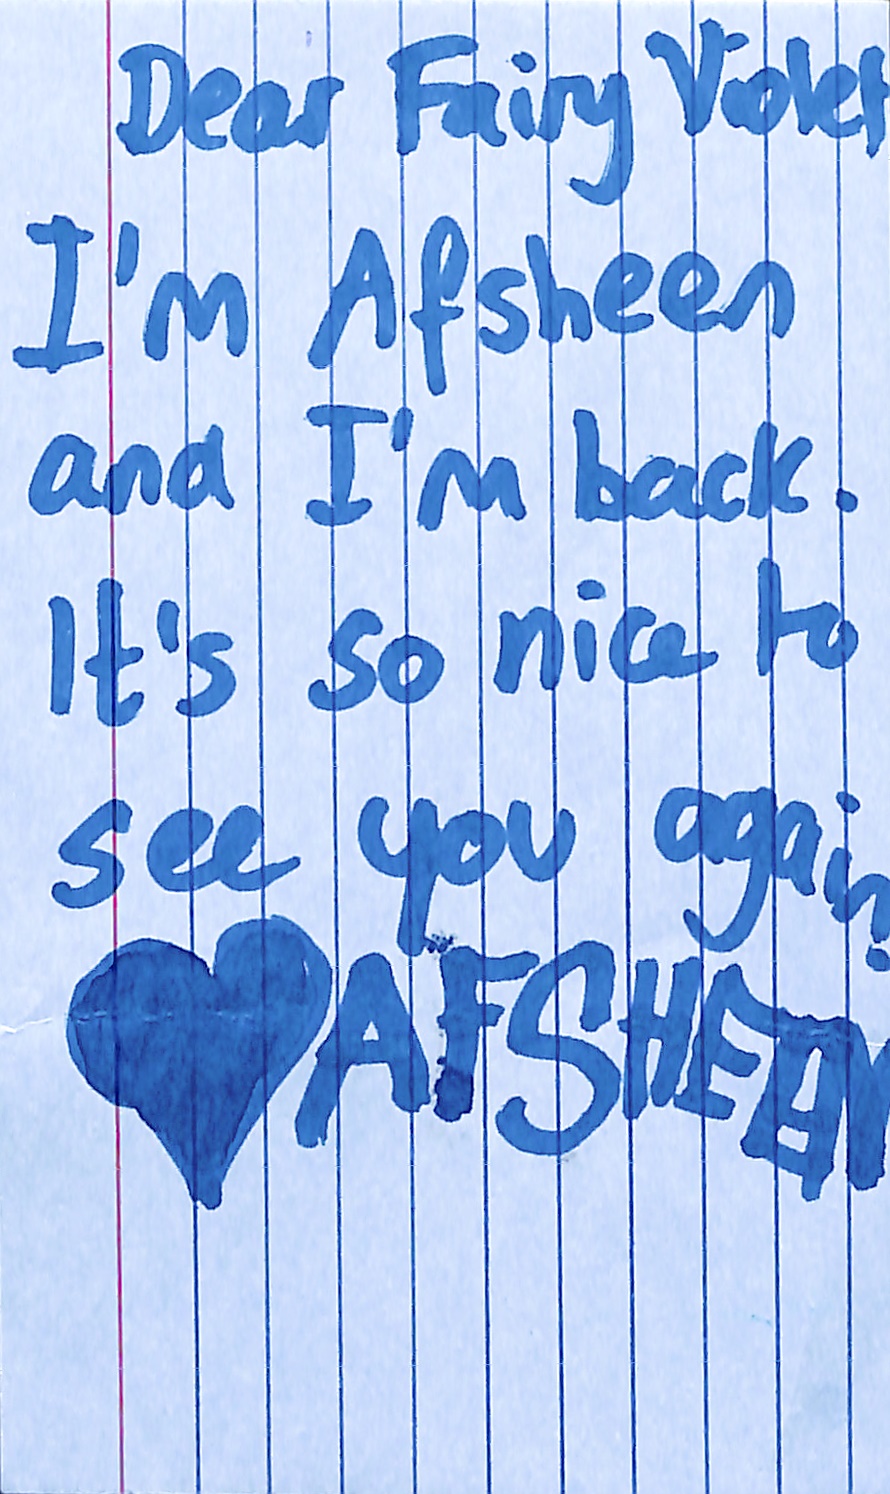 Dear Fairy Violet
I'm Afsheen
and I'm back.
It's so nice to
see you again
AFSHEEN